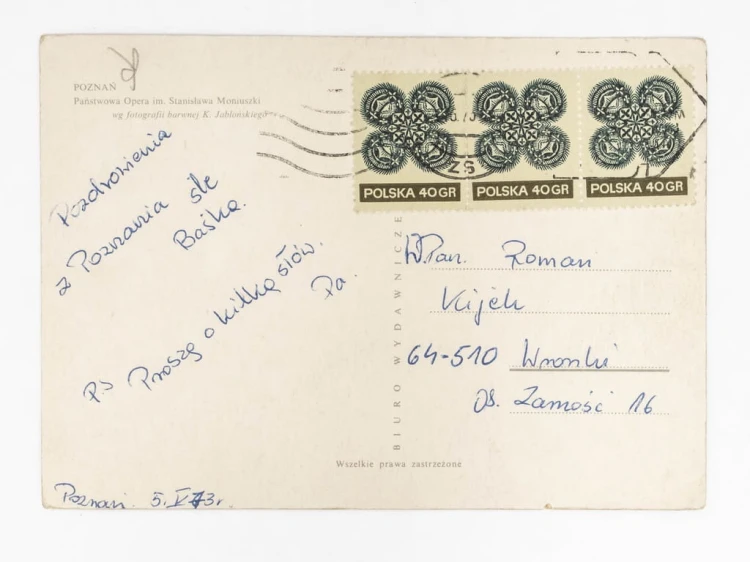 POZNAŃ
Państwowa Opera im. Stanisława Moniuszki
wg fotografii barwnej K. Jabłońskiego
Pozdrowienia
z Poznania śle
Baśka.
P.S Proszę o kilka słów.
Pa.
Poznań. 5.V.73r.
POLSKA 40 GR
POLSKA 40 GR
POLSKA 40 GR
BIURO WYDAWNICZE
W.Pan. Roman
Kijek
64-510 Wronki
Os. Zamość 16
Wszelkie prawa zastrzeżone